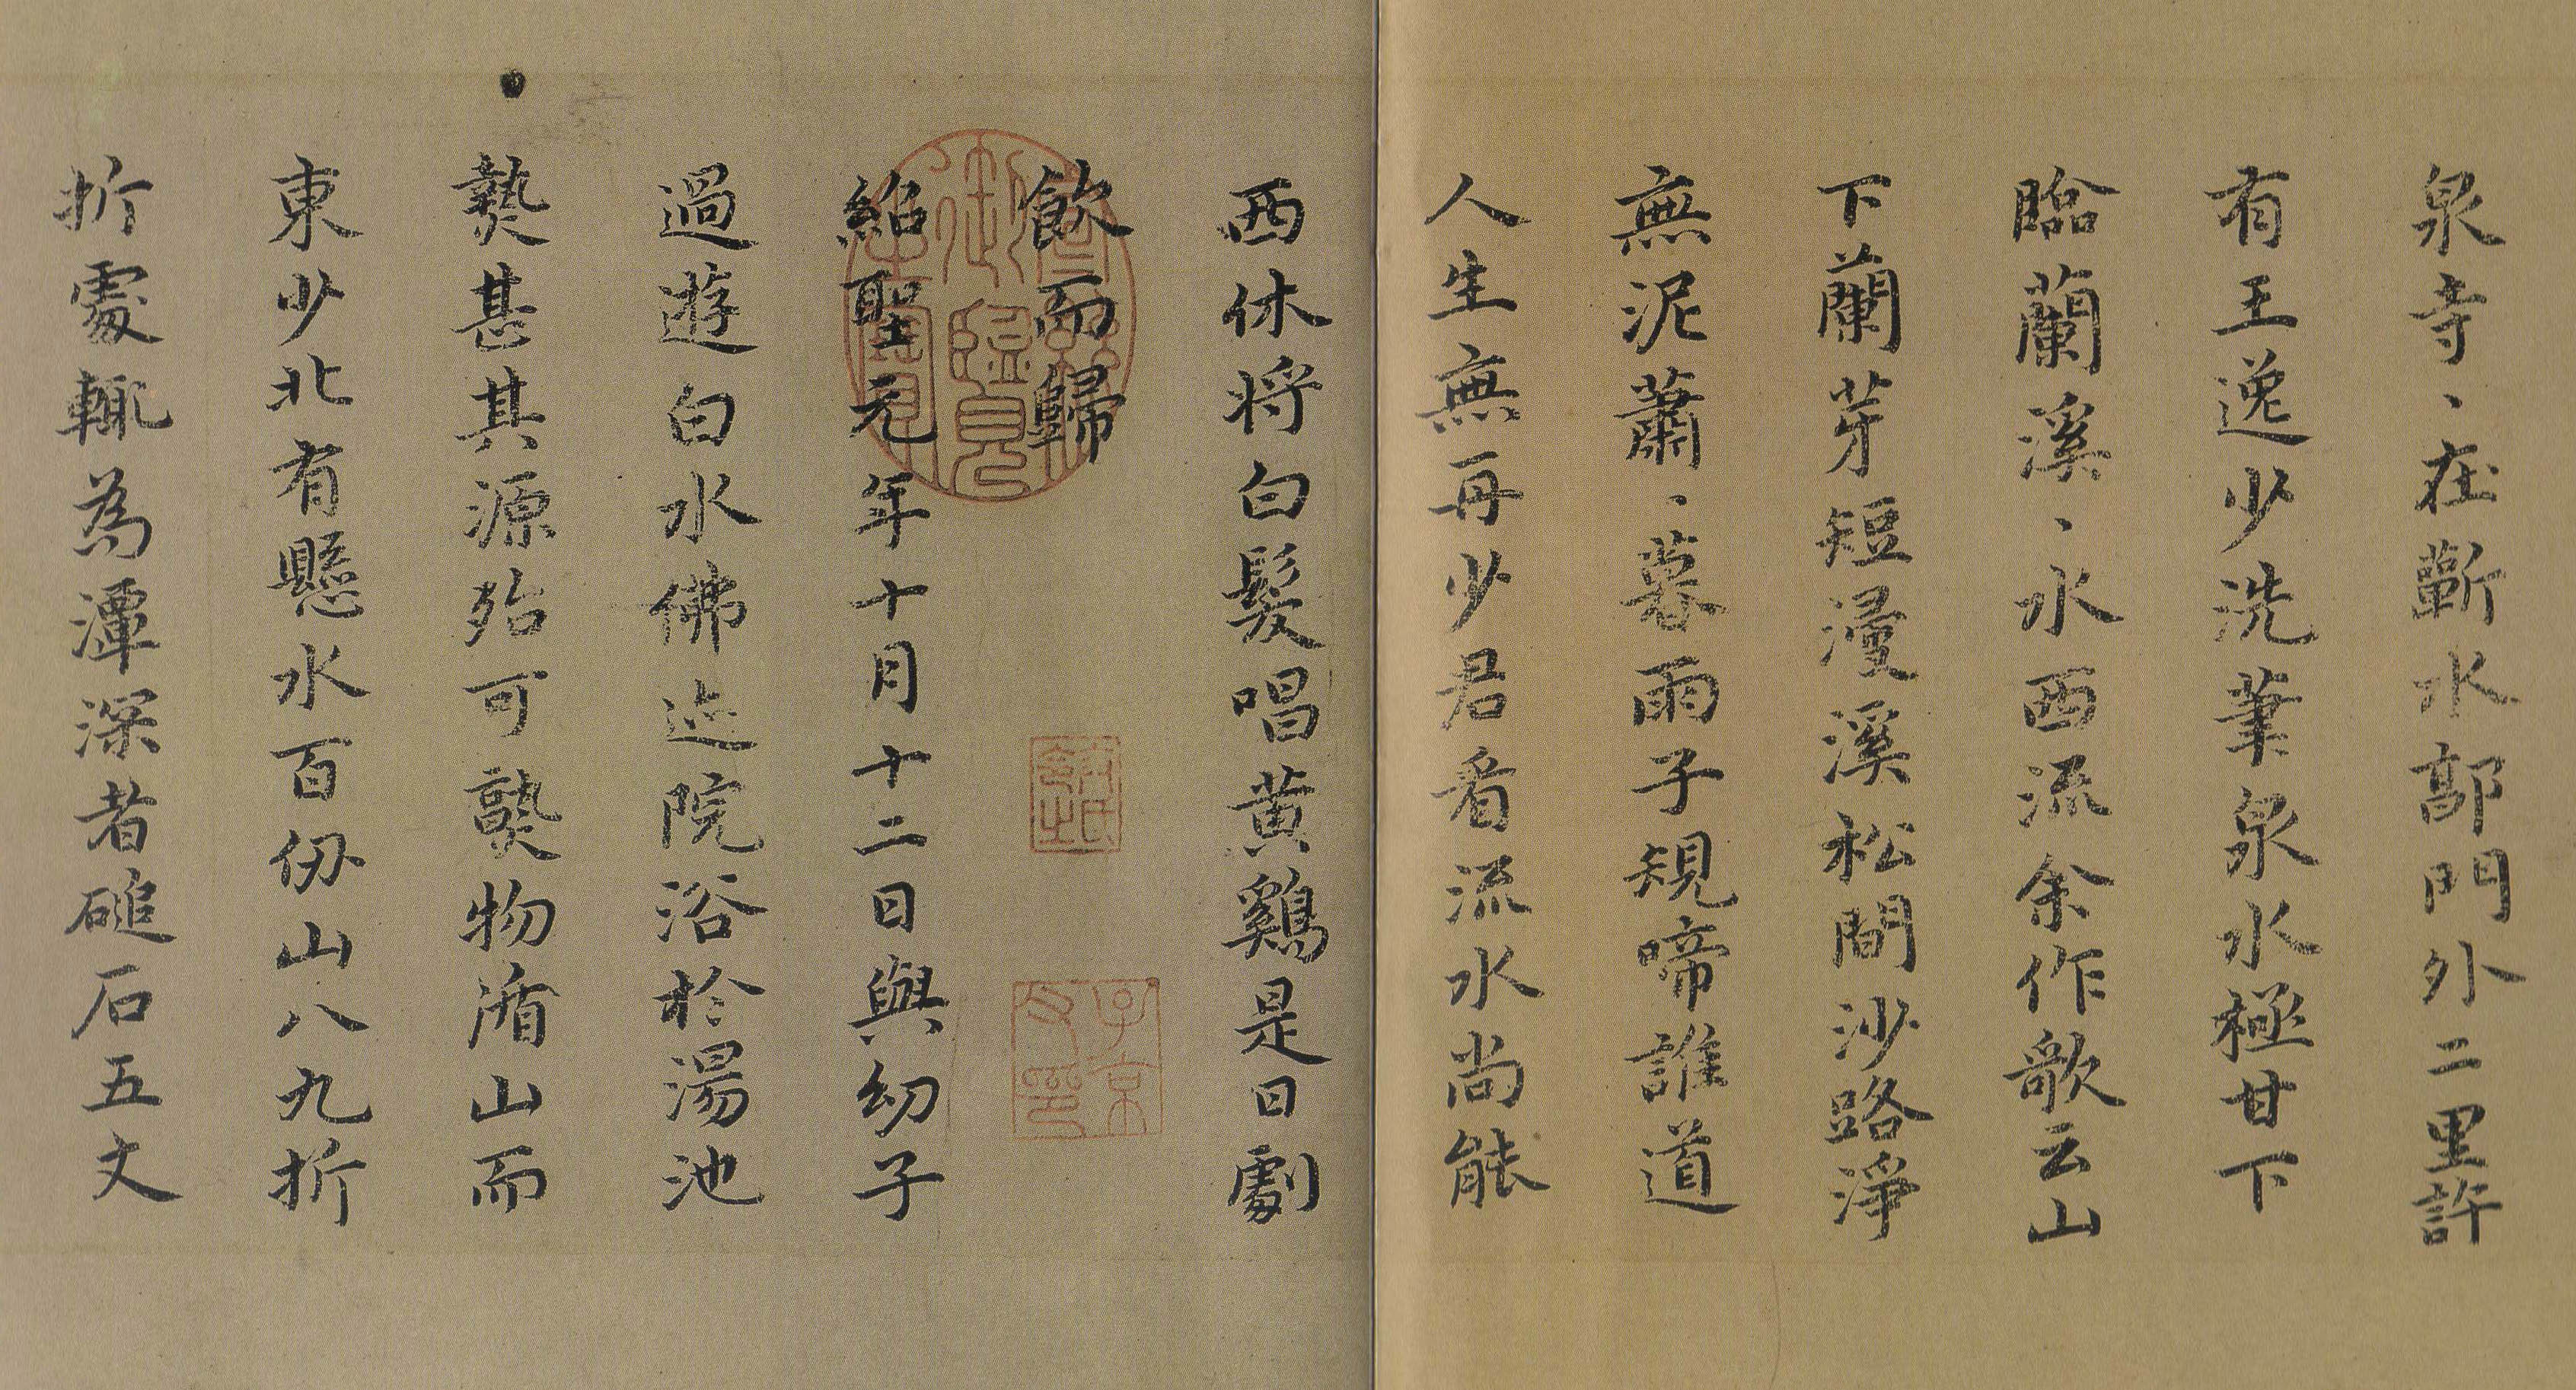 泉寺、在蘄水郭門外二里許
有王逸少洗筆泉水極甘下
臨蘭溪、水西流余作歌云山
下蘭芽短浸溪松間沙路淨
無泥蕭、暮雨子規啼誰道
人生無再少君看流水尚能
西休将白髮唱黄鷄是日劇
飲而歸
嘉慶御覽之寶
子京父印
紹聖元年十月十二日與幼子
過遊白水佛迹院浴於湯池
熱甚其源殆可熟物循山而
東少北有懸水百仞山八九折
折處輒為潭深者磓石五丈